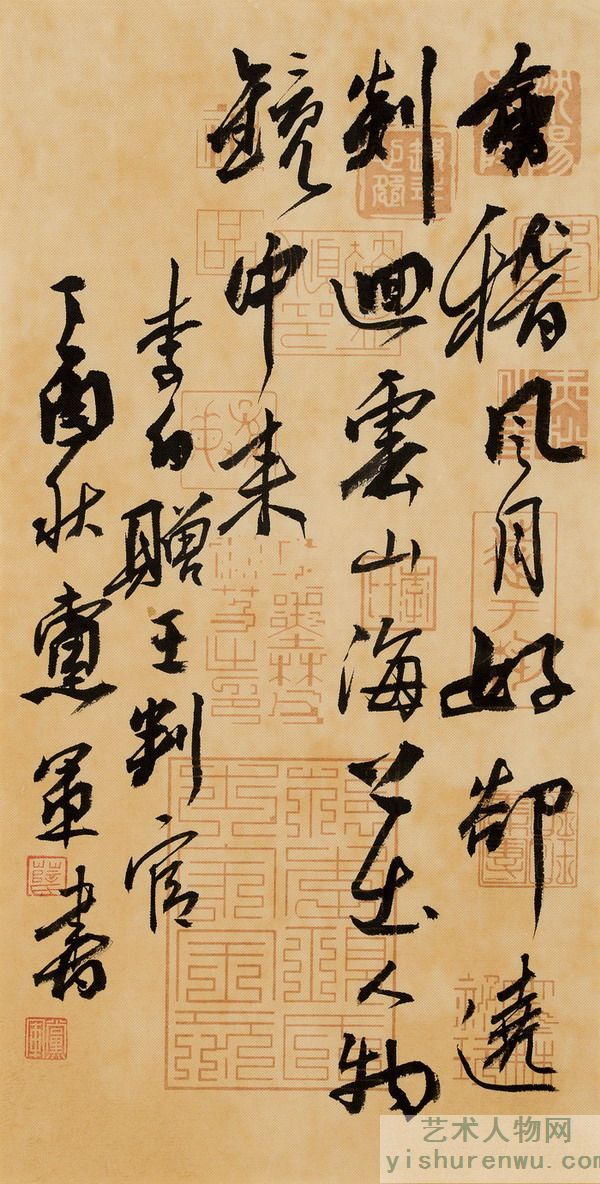 會稽風月好卻遶
剡迴雲山海上出人物
鏡中来
李白贈王判官
丁酉秋黨軍書
艺术人物网
yishurenwu.com